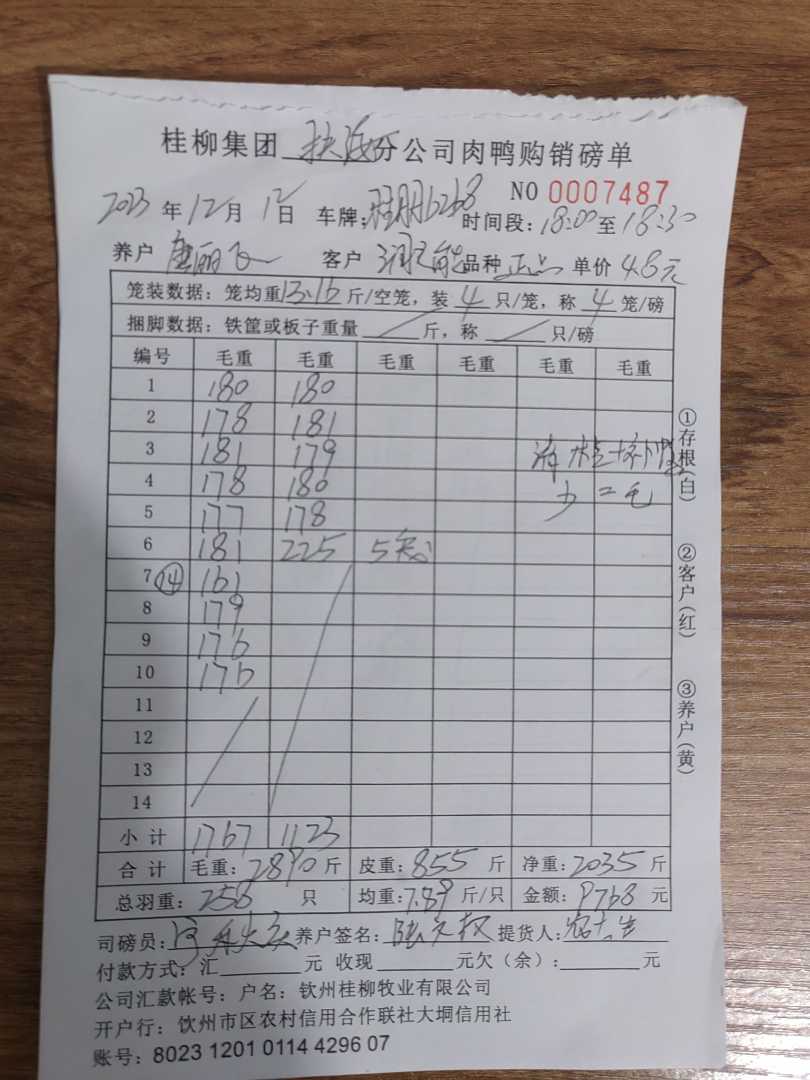 桂柳集团 扶海 分公司肉鸭购销磅单
NO 0007487
2023 年 12 月 12 日 车牌: 6268 时间段: 18:00 至 18:30
养户 唐丽飞 客户 润之能 品种 正品 单价 4.8元
笼装数据: 笼均重 13.15 斤/空笼, 装 4 只/笼, 称 4 笼/磅
捆脚数据: 铁筐或板子重量 斤, 称 只/磅
编号 毛重 毛重 毛重 毛重 毛重 毛重
1 180 180
2 178 181
3 181 179
4 178 180
5 177 178
6 181 225 5笼
7 ⑭ 161
8 179
9 176
10 176
11
12
13
14
少二毛
小计 1767 1123
合计 毛重: 2890 斤 皮重: 855 斤 净重: 2035 斤
总羽重: 258 只 均重: 7.89 斤/只 金额: 9768 元
司磅员: 养户签名: 提货人:
付款方式: 汇 元 收现 元欠(余): 元
公司汇款帐号: 户名: 钦州桂柳牧业有限公司
开户行: 饮州市区农村信用合作联社大垌信用社
账号: 8023 1201 0114 4296 07
①存根(白)
②客户(红)
③养户(黄)